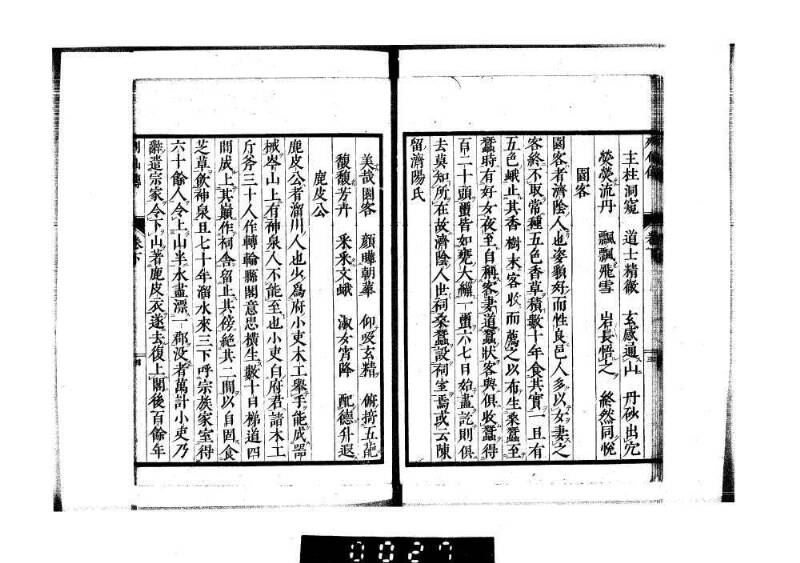 主柱洞窺　道士精徹　玄感通山　丹砂出穴
熒熒流丹　飄飄飛雪　岩長悟之　終然同悅
園客
園客者濟陰人也姿貌好而性良邑人多以女妻之
客終不取常種五色香草積數十年食其實一旦有
五色蛾止其香樹末客收而薦之以布生桑蠶至
蠶時有好女夜至自稱客妻道蠶狀客與俱收蠶得
百二十頭繭皆如甕大繅一繭六七日始盡訖則俱
去莫知所在故濟陰人世祠桑蠶設祠室焉或云陳
留濟陽氏
美哉園客　顏曄朝華　仰吸玄精　俯捋五葩
馥馥芳卉　采采文蛾　淑女宵降　配德升遐
鹿皮公
鹿皮公者淄川人也少為府小吏木工舉手能成器
械岑山上有神泉人不能至也小吏白府君請木工
斤斧三十人作轉輪縣閣意思橫生數十日梯道四
間成上其巔作祠舍留止其傍絕其二間以自固食
芝草飲神泉且七十年淄水來三下呼宗族家室得
六十餘人令上山半水盡漂一郡沒者萬計小吏乃
辭遣宗家令下山著鹿皮衣遂去復上閣後百餘年
卷下
0027